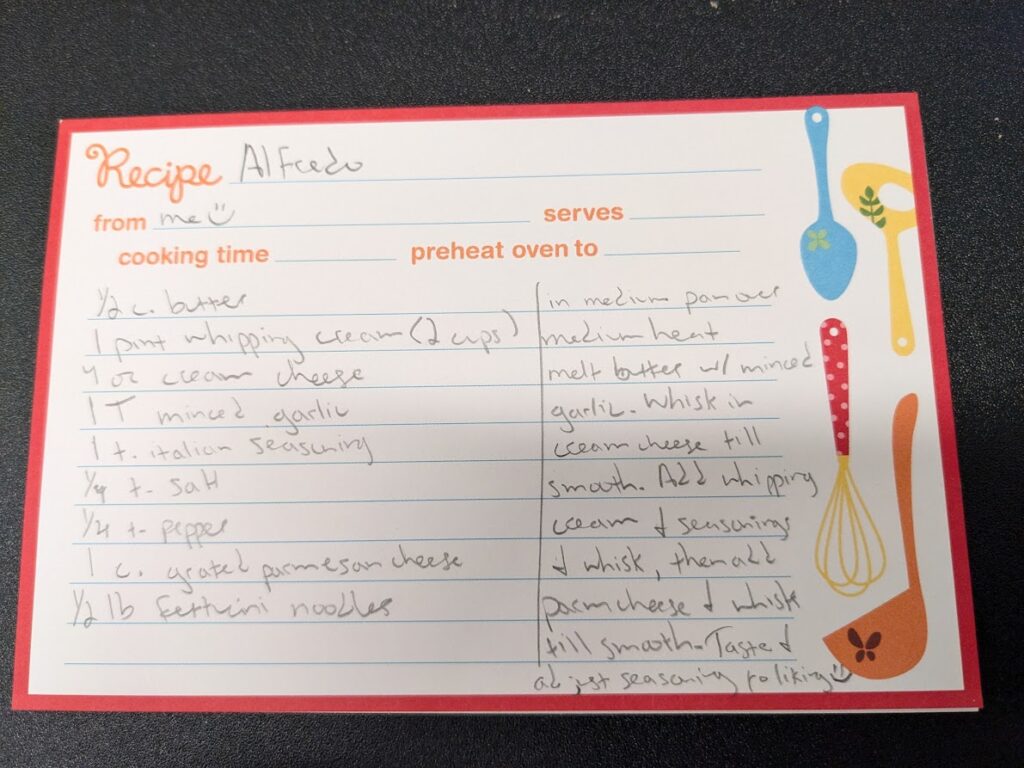 Recipe Alfredo
from me☺ serves
cooking time preheat oven to
1/2 c. butter
1 pint whipping cream (2 cups)
4 oz cream cheese
1 T minced garlic
1 t. italian seasoning
1/4 t. salt
1/4 t. pepper
1 c. grated parmesan cheese
1/2 lb fettucini noodles
in medium pan over
medium heat
melt butter w/ minced
garlic. Whisk in
cream cheese till
smooth. Add whipping
cream & seasonings
& whisk, then add
parm cheese & whisk
till smooth. Taste &
adjust seasoning to liking☺